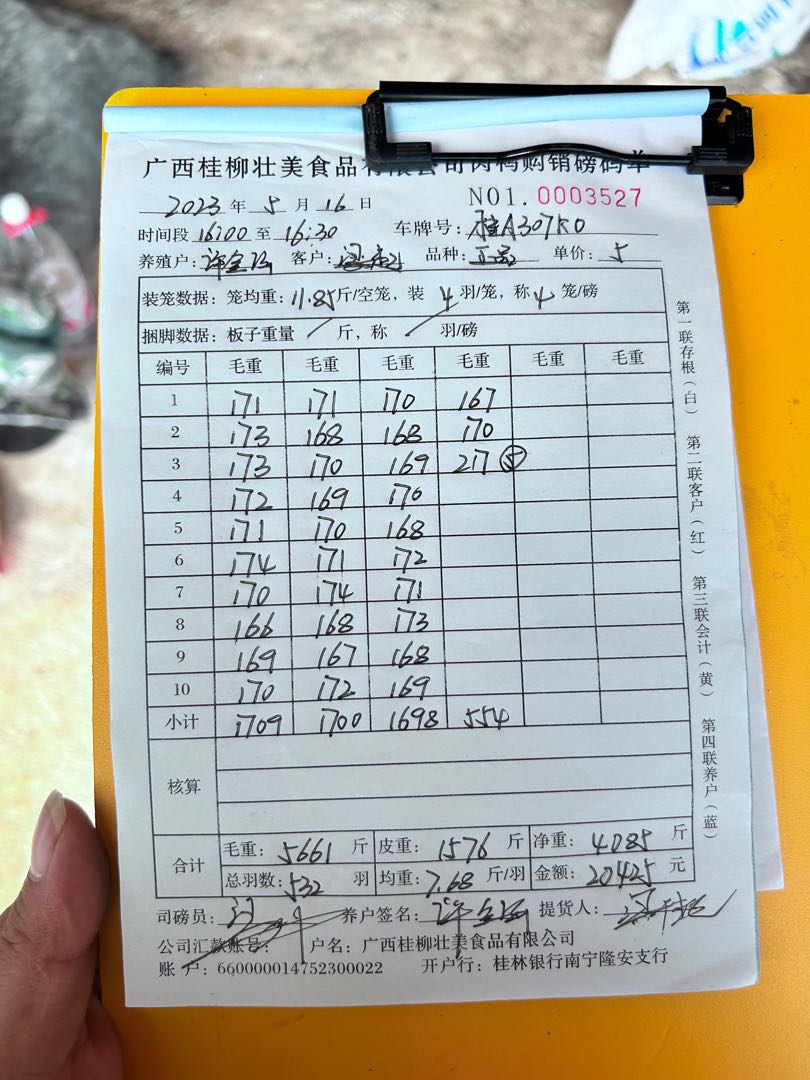 广西桂柳壮美食品有限公司肉鸭购销磅码单
2023 年 5 月 16 日 NO1. 0003527
时间段 16:00 至 16:30 车牌号: 桂A307K0
养殖户: 许金 客户: 品种: 正品 单价: 5
装笼数据: 笼均重: 11.85 斤/空笼, 装 4 羽/笼, 称 4 笼/磅
捆脚数据: 板子重量 / 斤, 称 / 羽/磅
编号 毛重 毛重 毛重 毛重 毛重 毛重
1 171 171 170 167
2 173 168 168 170
3 173 170 169 217 ⑤
4 172 169 170
5 171 170 168
6 174 171 172
7 170 174 171
8 166 168 173
9 169 167 168
10 170 172 169
小计 1709 1700 1698 554
核算
合计 毛重: 5661 斤 皮重: 1576 斤 净重: 4085 斤
总羽数: 532 羽 均重: 7.68 斤/羽 金额: 20425 元
司磅员: 养户签名: 许金 提货人:
公司汇款账号: 户名: 广西桂柳壮美食品有限公司
账户: 660000014752300022 开户行: 桂林银行南宁隆安支行
第一联存根(白) 第二联客户(红) 第三联会计(黄) 第四联养户(蓝)